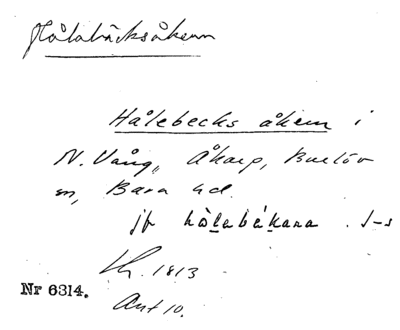 Hålabäcksåkern
Hålebecks åkern i
N. Vång, Åkarp, Burlöv
sn, Bara hd.
jfr hålabäkara
Lh. 1813
Ant 10.
Nr 6314.